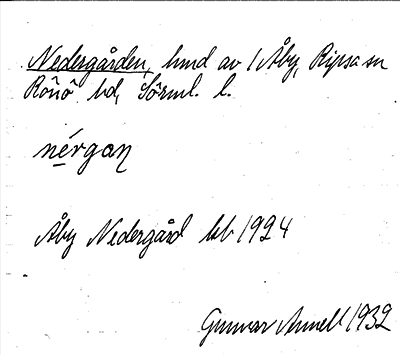 Nedergården, hmd av 1 Åby, Ripsa sn
Rönö hd, Sörml. l.
nérgan
Åby Nedergård kb 1924
Gunnar Annell 1932